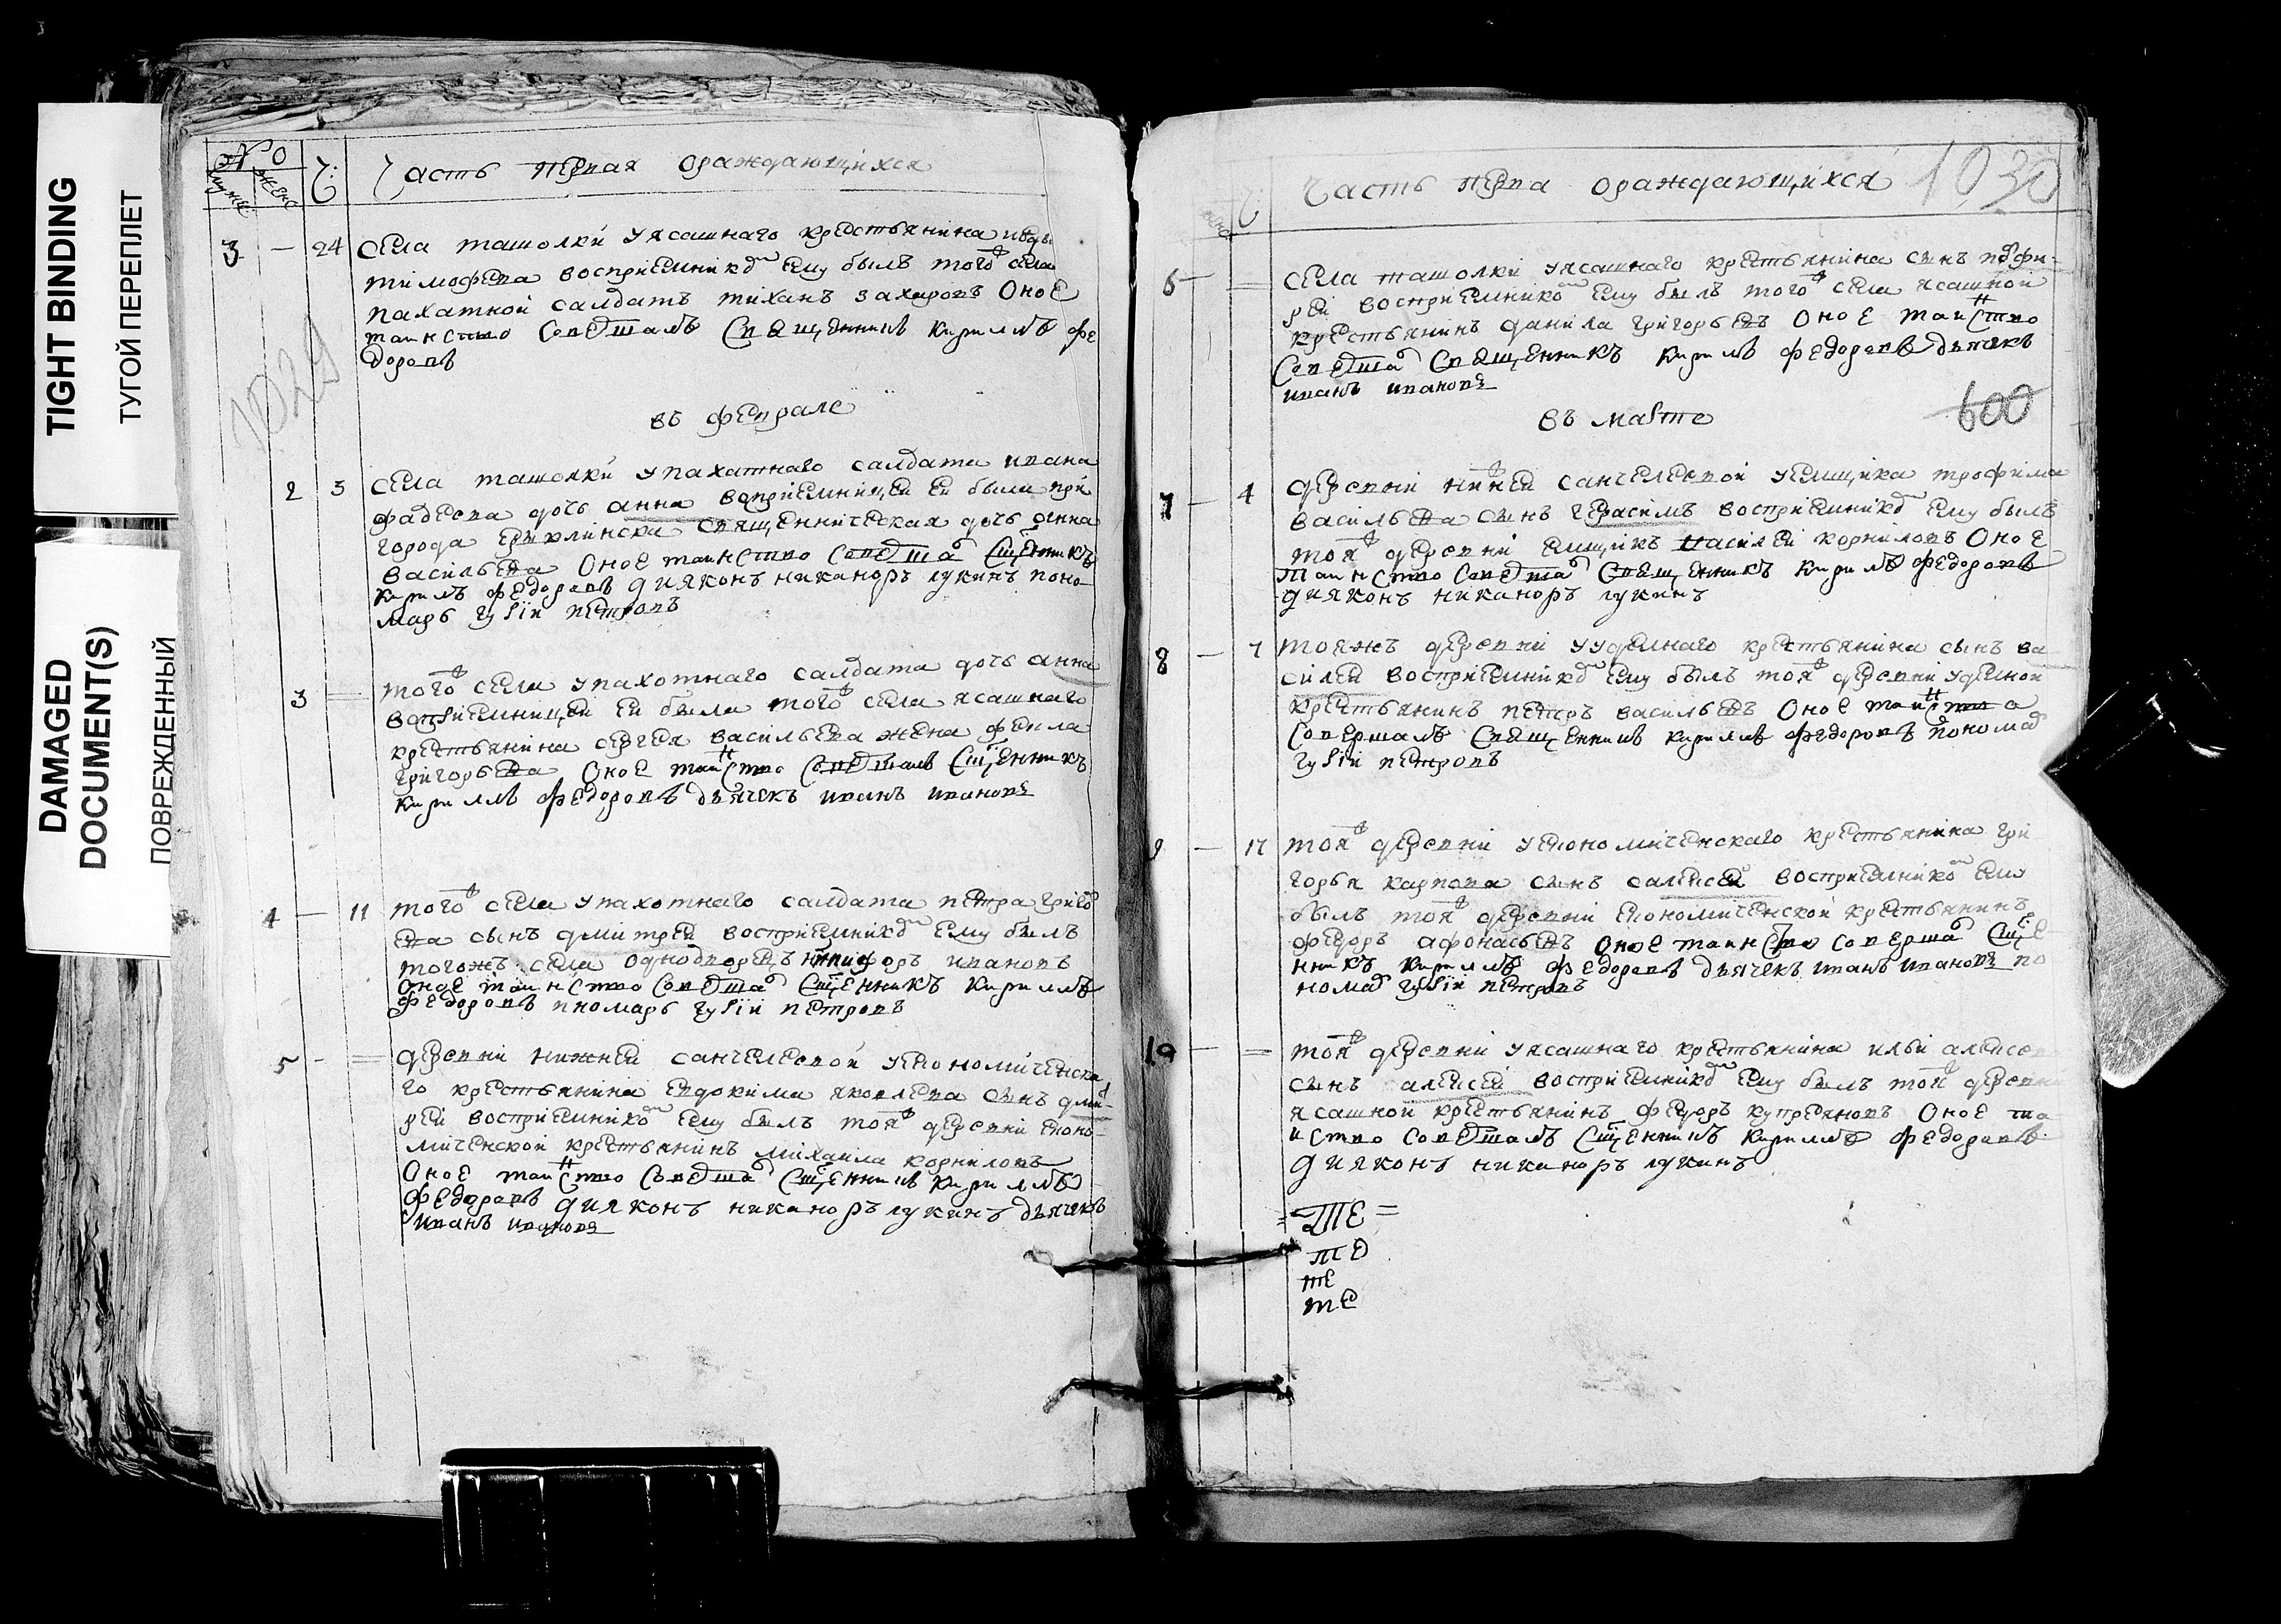 TIGHT BINDING
ТУГОЙ ПЕРЕПЛЕТ
DAMAGED
DOCUMENT(S)
ПОВРЕЖДЕННЫЙ
№ 0
муже женс
Ч:
Часть первая ораждающихся
3 — 24 села ташолки у ясашнаго крестьянина
тимофеева восприемником ему былъ тогож села
пахатной салдатъ тихан захаровъ Оное
таинство Совершалъ Священникъ Кириллъ фе
доровъ
1029
въ феврале
2 3 села ташолки у пахатнаго салдата ивана
фадеева дочь анна восприемницей ей была при
города ерыклинска священническая дочь анна
васильева Оное таинство Соверша Сщенникъ
Кирилъ федоровъ диаконъ никаноръ лукинъ поно
марь гурiй петровъ
3 = тогож села у пахотнаго салдата дочь анна
восприемницей ей была тогож села ясашнаго
крестьянина сергея васильева жена фекла
григорьева Оное таинство Совершалъ Сщенникъ
Кириллъ федоровъ дьячекъ иванъ ивановъ
4 — 11 тогож села у пахотнаго салдата петра григо
ева сынъ дмитрей восприемником ему былъ
тогожъ села однодворецъ никифоръ ивановъ
Оное таинство Соверша Сщенникъ Кириллъ
федоровъ пномарь гурiй петровъ
5 - = деревни нижней санчелеевой у економическа
го крестьянина евдокима яковлева сынъ дмит-
рей восприемником ему былъ тояж деревни еконо-
мической крестьянинъ михаила корниловъ
Оное таинство Соверша Сщенникъ Кириллъ
федоровъ диаконъ никаноръ лукинъ дьячекъ
иванъ ивановъ
Часть перва ораждающихся 1030
6 — = села ташолки у ясашнаго крестьянина сынъ порфи-
рей восприемником ему былъ тогож села ясашной
крестьянинъ данила григорьевъ Оное таинство
Соверша Священникъ Кирилъ федоровъ дьячекъ
иванъ ивановъ
600
въ марте
7 — 4 деревни нижней санчелеевой у емщика трофима
васильева сынъ герасимъ восприемником ему былъ
тояж деревни емщикъ василей корниловъ Оное
Таинство Соверша Священникъ Кирилъ федоровъ
диаконъ никаноръ лукинъ
8 — 7 тояжъ деревни у уделнаго крестьянина сынъ ва
силей восприемником ему былъ тояж деревни уделной
крестьянинъ петръ васильевъ Оное таинства
Совершалъ Священникъ Кириллъ федоровъ понома
гурiй петровъ
9 — 17 тояж деревни у економическаго крестьянина гри
горья карпова сынъ алексей восприемником ему
былъ тояж деревни економической крестьянинъ
федоръ афонасьевъ Оное таинство соверша Сще
нникъ Кириллъ федоровъ дьячекъ иванъ ивановъ по
номар гурiй петровъ
10 — = тояж деревни у ясашнаго крестьянина ильи алексеева
сынъ алексей восприемником ему былъ тояж деревни
ясашной крестьянинъ федоръ купреяновъ Оное та
инство Совершалъ Сщенникъ Кириллъ федоровъ
диаконъ никаноръ лукинъ
= ТЕ =
те
те
те